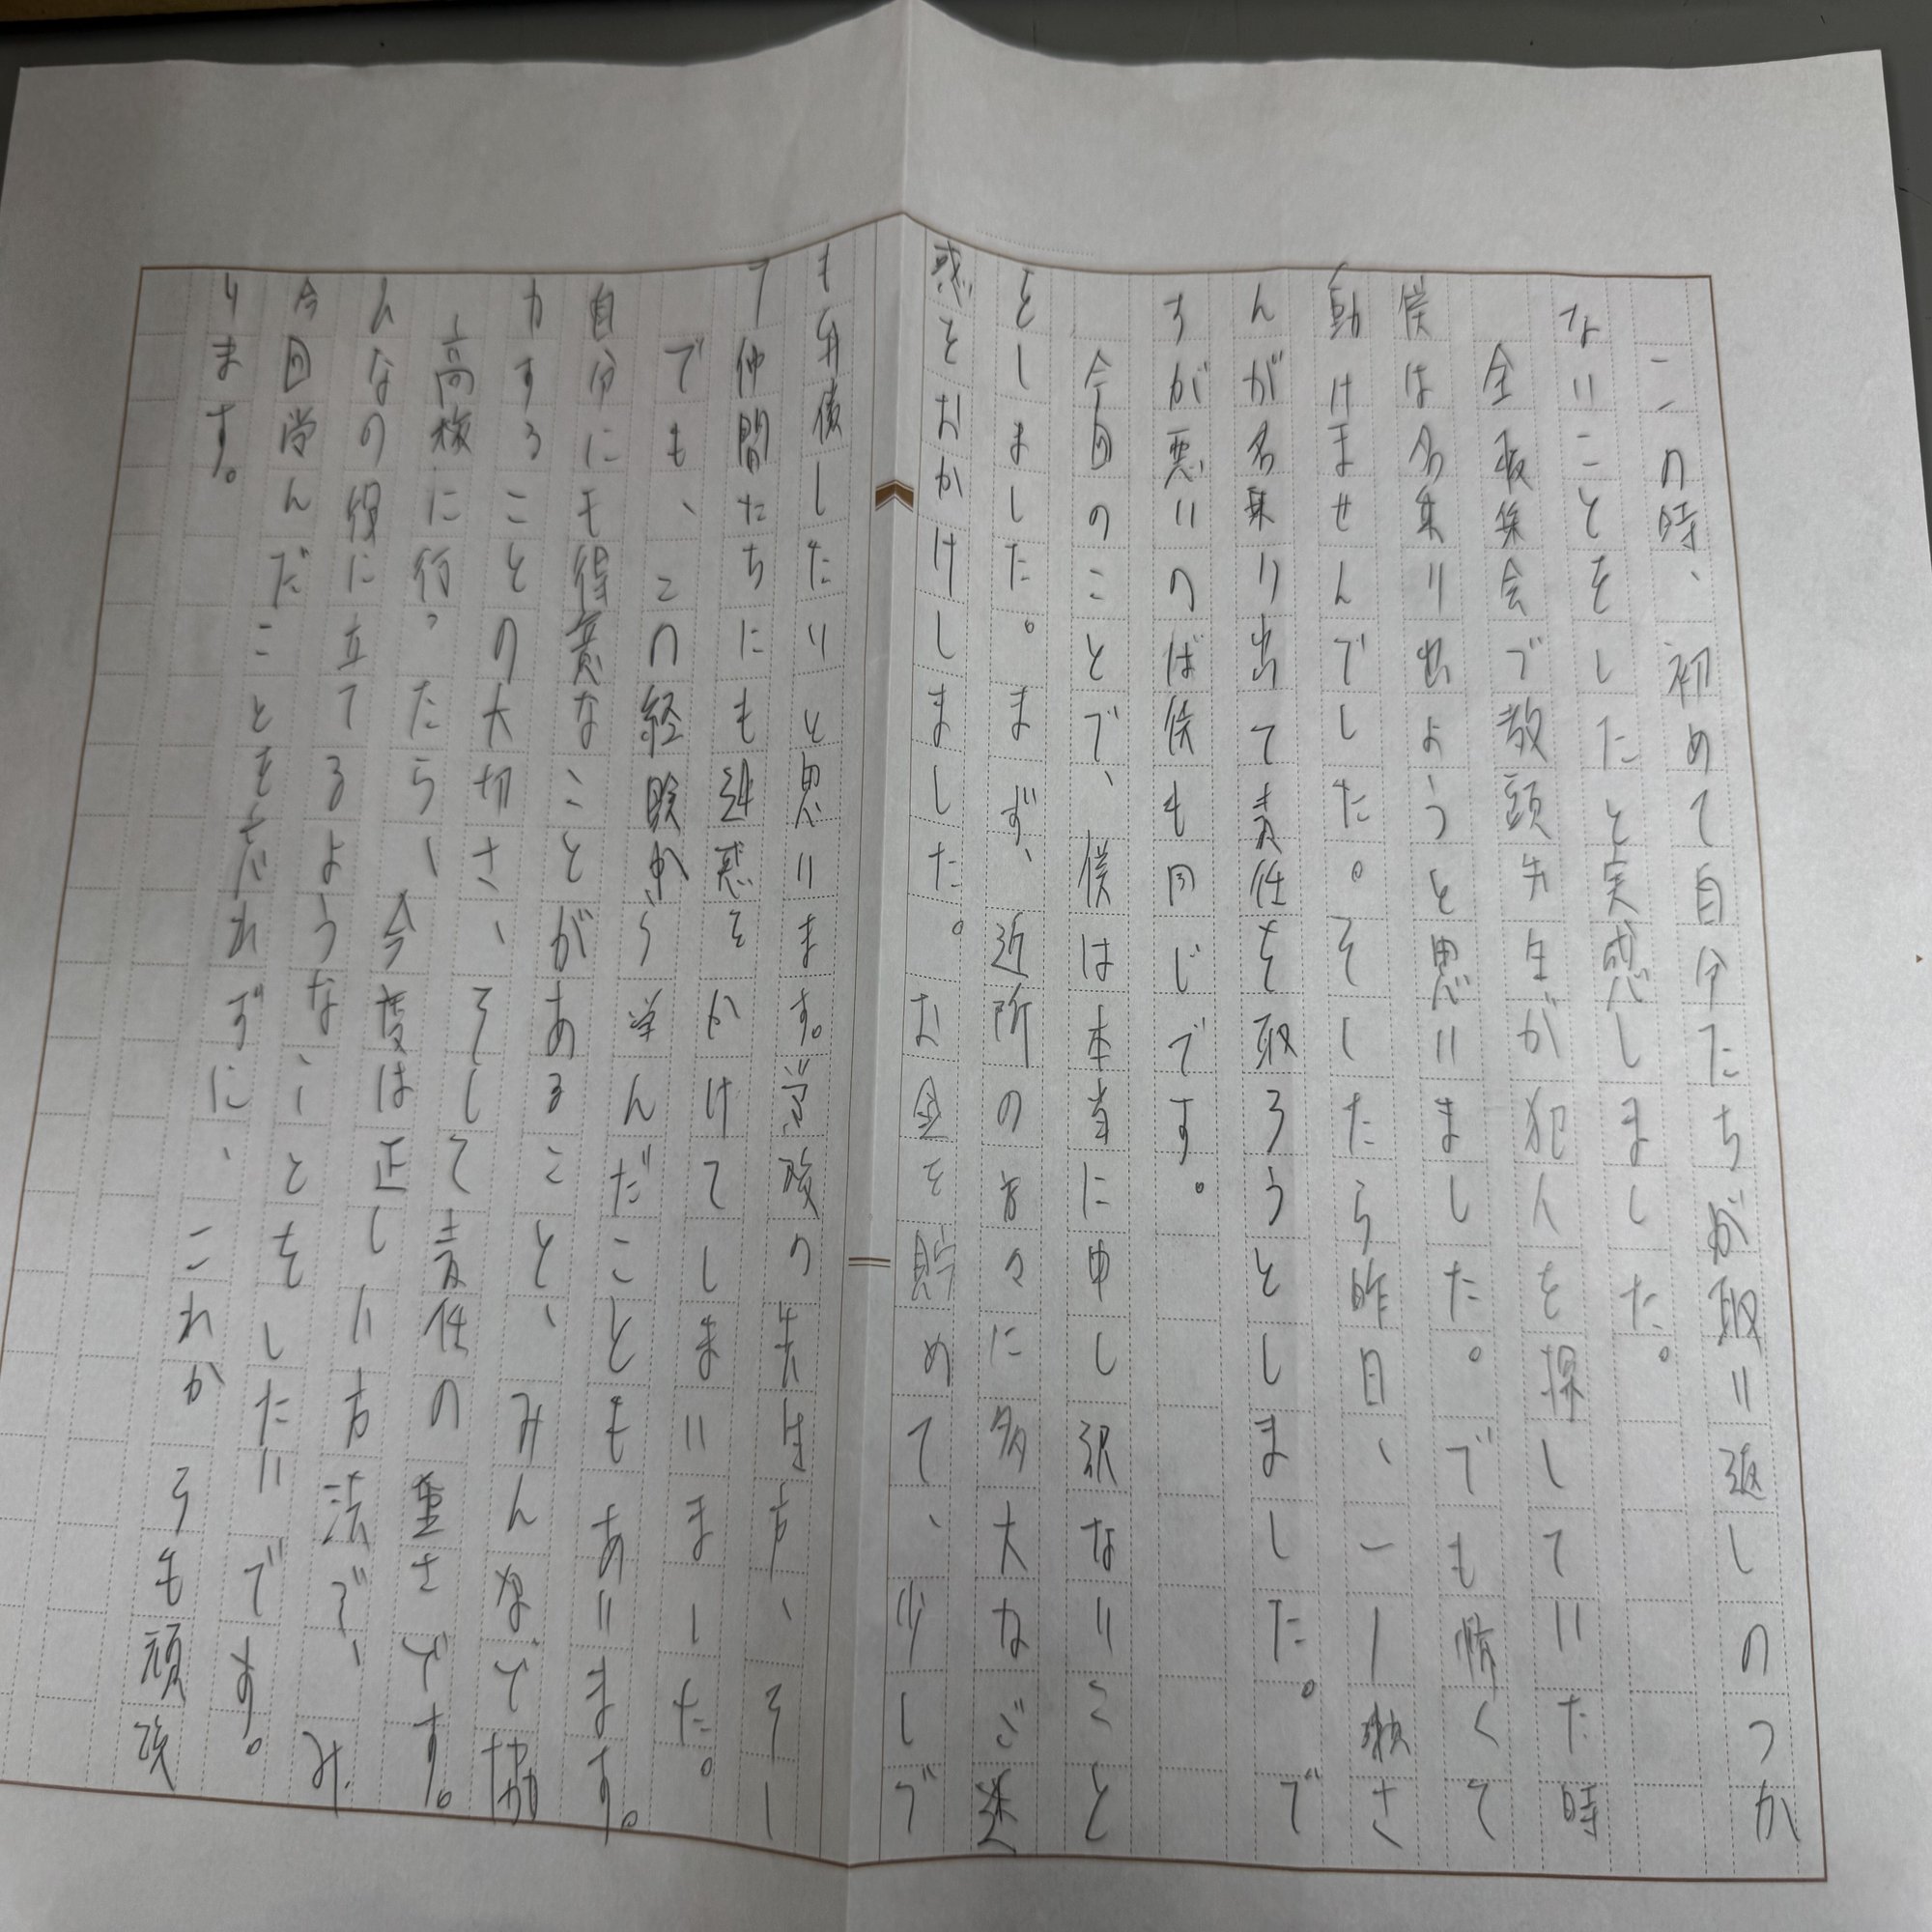 この時、初めて自分たちが取り返しのつか
ないことをしたと実感しました。
全校集会で教頭先生が犯人を探していた時
僕は名乗り出ようと思いました。でも怖くて
動けませんでした。そしたら昨日、一ノ瀬さ
んが名乗り出て責任を取ろうとしました。で
すが悪いのは僕も同じです。
今回のことで、僕は本当に申し訳ないこと
をしました。まず、近所の方々に多大なご迷
惑をおかけしました。お金を貯めて、少しで
も弁償したいと思います。学校の先生方、そし
て仲間たちにも迷惑をかけてしまいました。
でも、この経験から学んだこともあります。
自分にも得意なことがあること、みんなで協
力することの大切さ、そして責任の重さです。
高校に行ったら、今度は正しい方法で、み
んなの役に立てるようなことをしたいです。
今回学んだことを忘れずに、これからも頑張
ります。